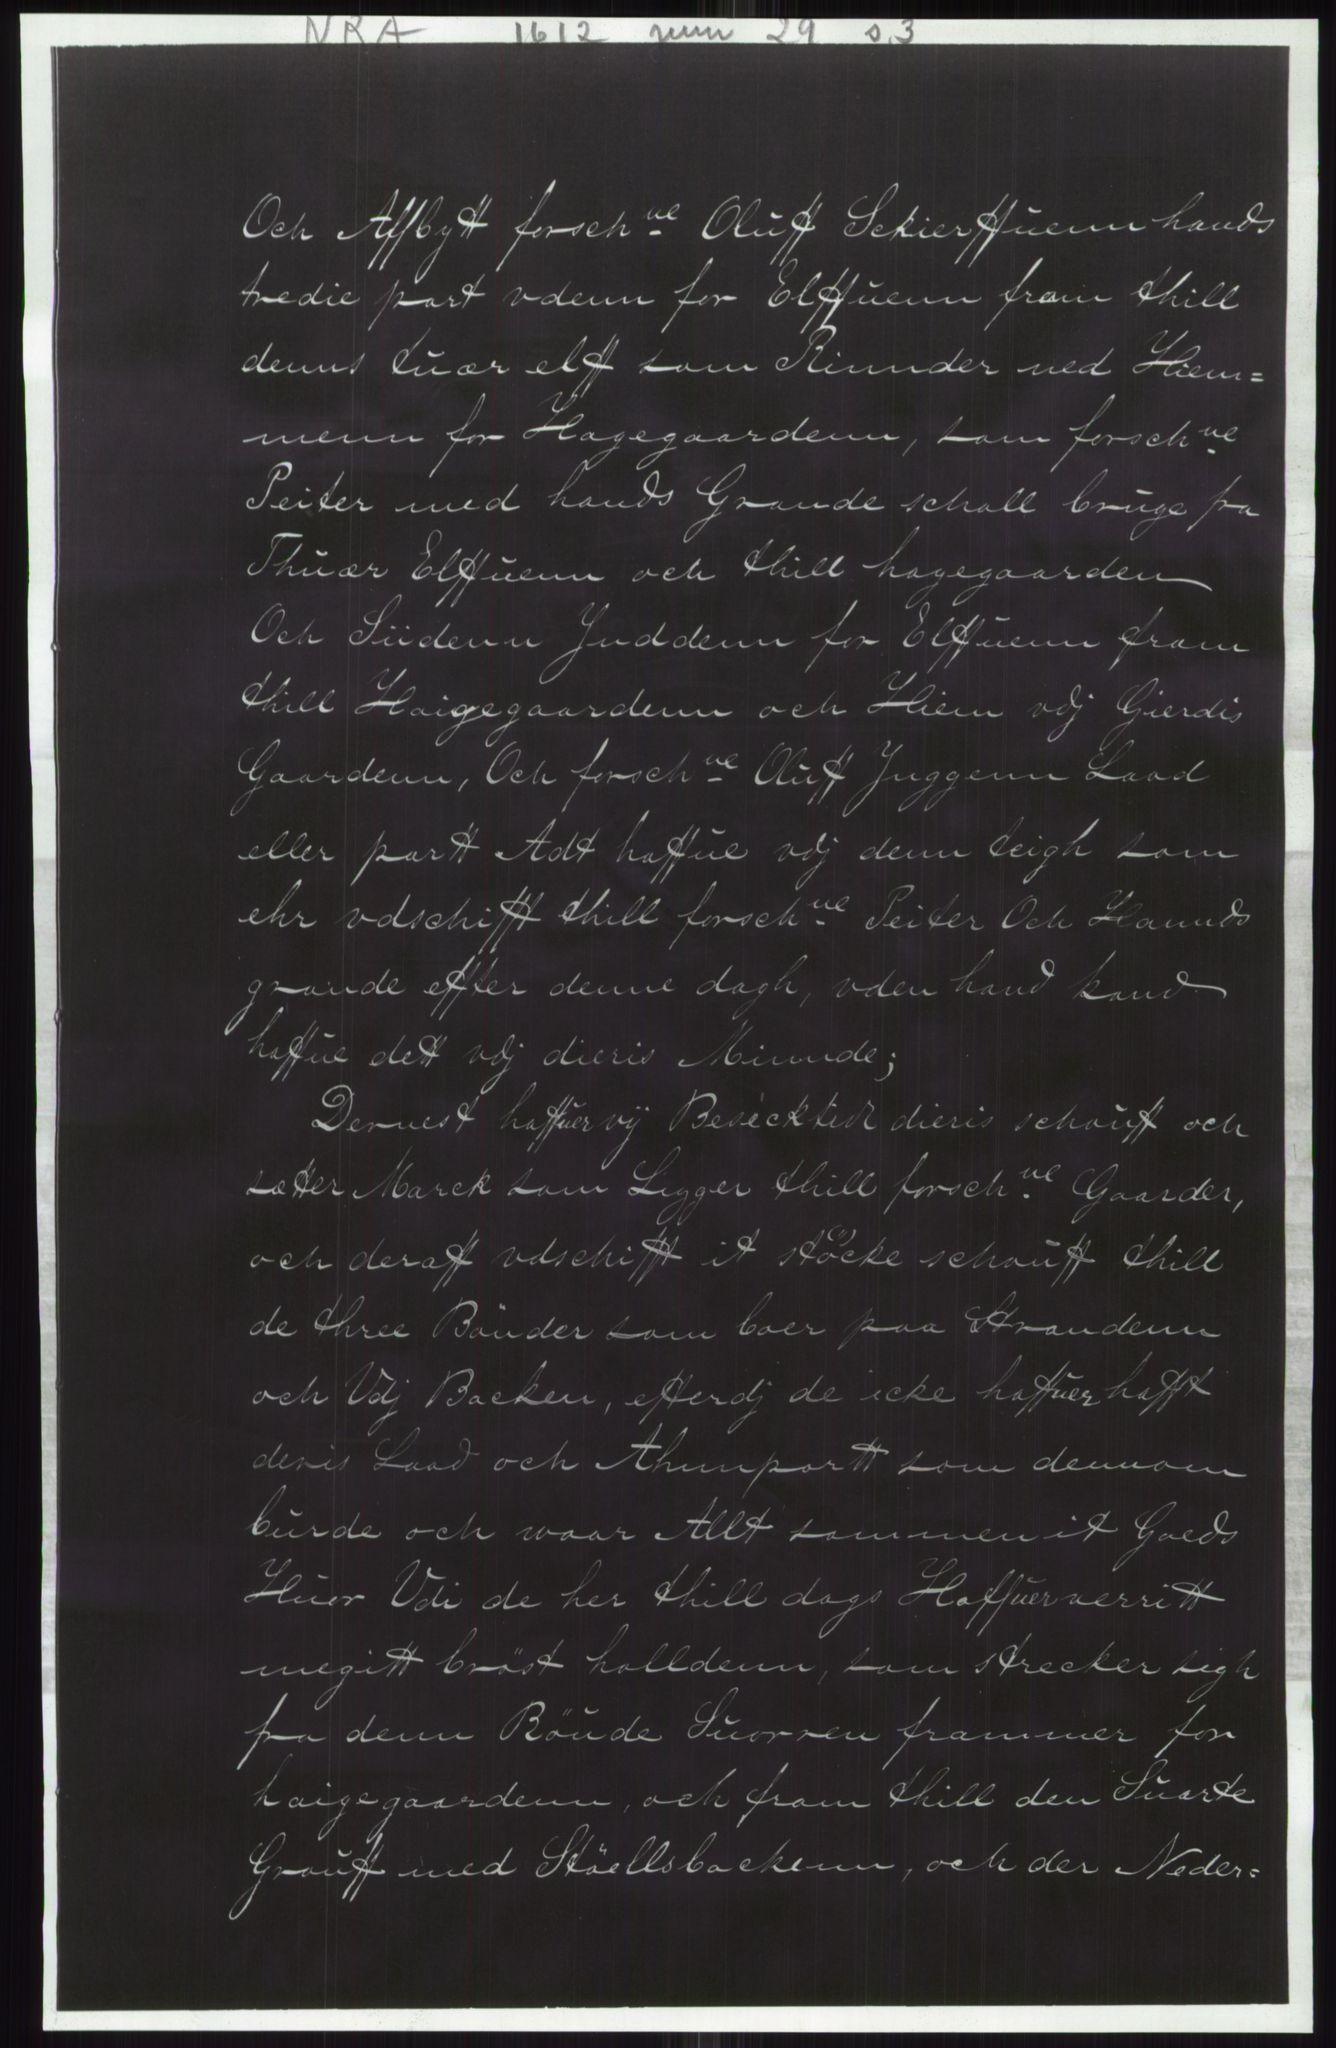 NRA 1612 juni 29 s.3
Och Affbytt forsch ne Oluff Sckierffuenn hands
tredie part vdenn for Elffuenn fram thill
denns tuær elff som Rinnder ned Hiem=
menn for Hagegaardenn, som forsch ne
Peiter med hands Grande schall bruge fra
Thuær Elffuenn och thill hagegaarden
Och Siidenn Jnddenn for Elffuenn fram
thill Haigegaardenn och Hiem vdj Gierdis
Gaardenn, Och forsch ne Oluff Jnggenn Laad
eller partt Adt haffue vdj denn teigh som
ehr vdschifft thill forsch ne Peiter Och Hannds
grande effter denne dagh, vden hand kand
haffue dett vdj dieris Minnde;
Dernest haffuer vij Besecktet dieris schouff och
sætter Marck som Ligger thill forsch ne Gaarder,
och deraff vdschifft it stöcke schouff thill
de three Bönder som boer paa Strandenn
och Vdj Backen, efterdj de icke haffuer hafft
deris Laad och Ahnpartt som dennom
burde och waar Allt sammen it Goeds
Huor Vdi de her thill dags Haffuer verritt
megitt bröst halldenn, som strecker sigh
fra denn Röude Suorren frammer for
haigegaardenn, och fram thill den Suarte
Grouff med Stöellsbackenn, och der Neder=